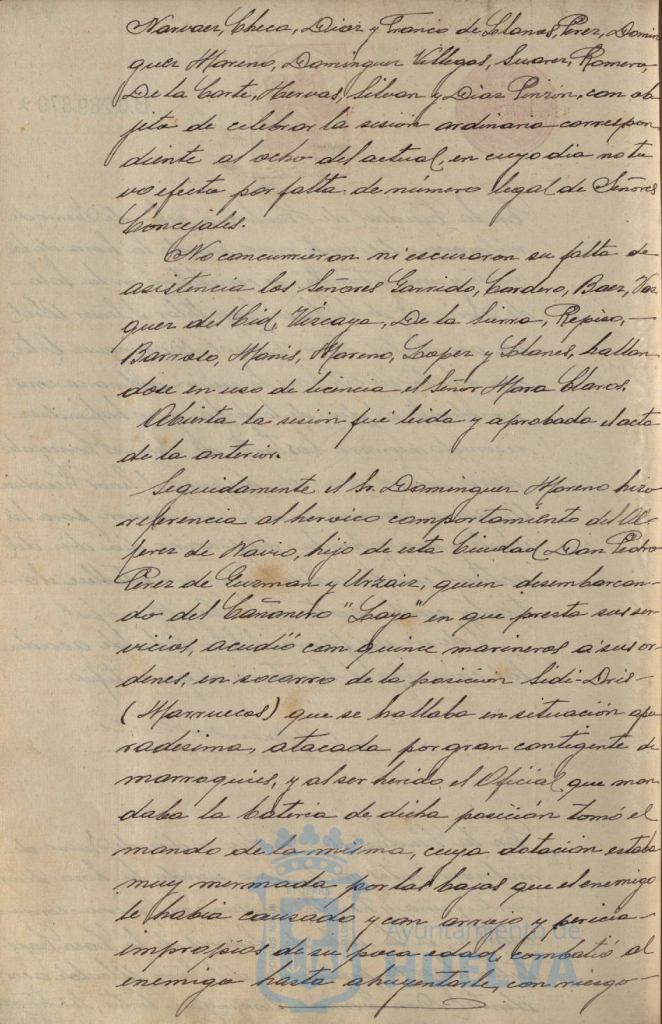 Narvaez, Checa, Diaz y Franco de Llanos, Perez, Domin
guez Moreno, Dominguez Villegas, Suarez, Romero,
De la Corte, Hervas, Silvan y Diaz Pinzón, con ob
jeto de celebrar la sesión ordinaria correspon
diente al ocho del actual, en cuyo dia no tu
vo efecto por falta de número legal de Señores
Concejales.
No concurrieron ni escusaron su falta de
asistencia los Señores Garrido, Cordero, Baez, Vaz
quez del Cid, Vizcaya, De la Sierra, Repiso,-
Barroso, Manis, Moreno, Lopez y Llanes, hallan
dose en uso de licencia el Señor Mora Claros.
Abierta la sesión fué leida y aprobada el acta
de la anterior.
Seguidamente el Sr. Dominguez Moreno hizo
referencia al heroico comportamiento del Al-
ferez de Navio, hijo de esta Ciudad Don Pedro
Perez de Guzman y Urzaiz, quien desembarcan-
do del Cañonero "Laya" en que presta sus ser-
vicios, acudió con quince marineros a sus or
denes, en socorro de la posición Sidi-Dris-
(Marruecos) que se hallaba en situación apu
radisima, atacada por gran contigente de
marroquies, y al ser herido el Oficial que man
daba la bateria de dicha posición tomó el
mando de la misma, cuya dotación estaba
muy mermada por las bajas que el enemigo
le habia causado y con arrojo y pericia-
impropios de su poca edad, combatió al
enemigo hasta ahuyentarle, con riesgo-
Ayuntamiento de
HUELVA